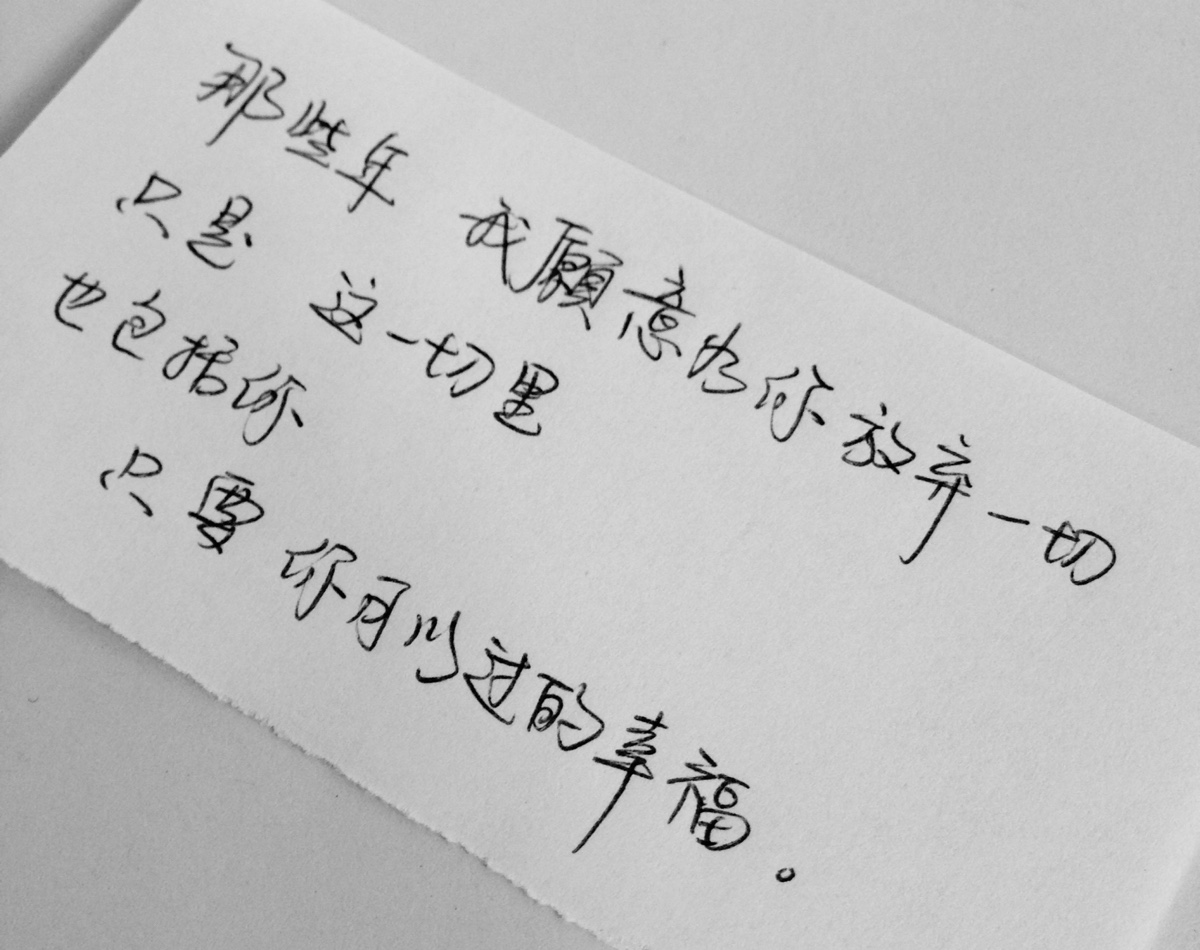 那些年 我願意为你放弃一切
只是 这一切里
也包括你
只要 你可以过的幸福。